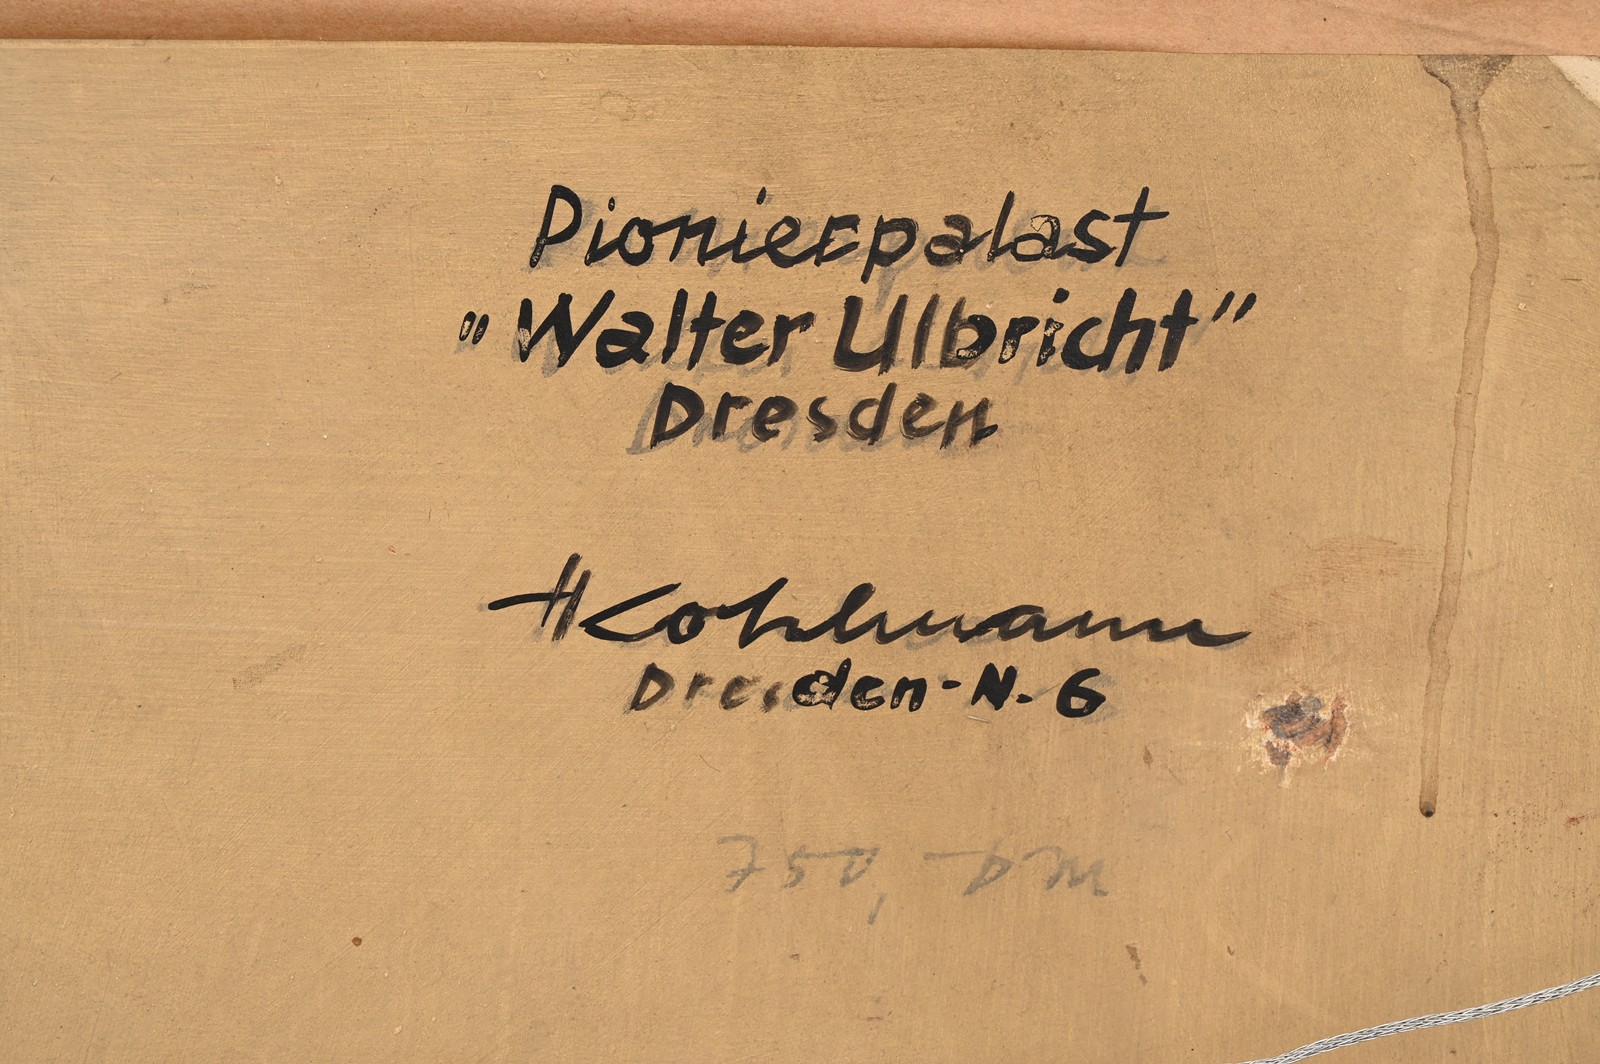 Pionierpalast
"Walter Ulbricht"
Dresden
HKohlmann
Dresden-N. 6
750,- DM